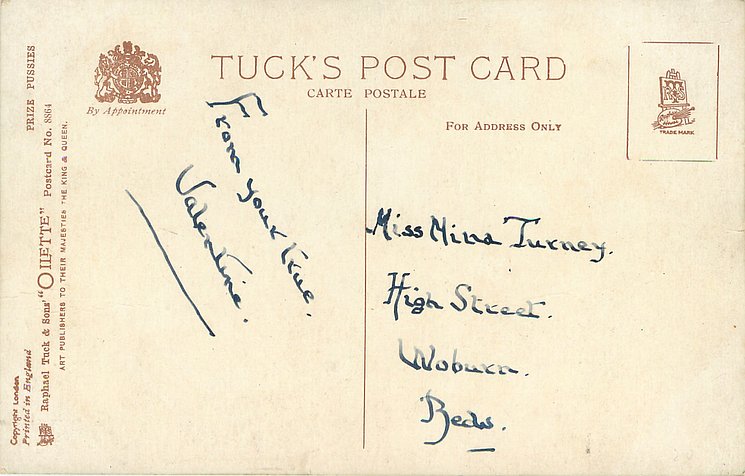 TUCK'S POST CARD
CARTE POSTALE
By Appointment
FOR ADDRESS ONLY
TRADE MARK
From your true
Valentine.
Miss Mina Turney.
High Street.
Woburn.
Beds.
PRIZE PUSSIES
Raphael Tuck & Sons' "OILETTE" Postcard No. 8864
ART PUBLISHERS TO THEIR MAJESTIES THE KING & QUEEN.
Copyright London
Printed in England